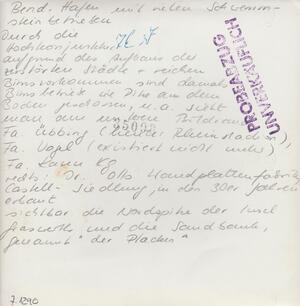 Bend. Hafen mit vielen Schwemm-
steinbetrieben
Durch die
Hochkonjunktur
aufgrund des Aufbaus der
zerstörten Städte + reichen
Bimsvorkommen sind damals
Bimsbetriebe wie Pilze aus dem
Boden geschossen, u.a. sieht
man am unteren Bildrand
Fa. Übbing (
Fa. Vogel (existiert nicht mehr)
Fa. Kann KG
rechts: Dr.
Castell-Siedlung, in den 30er Jahren
erbaut
sichtbar die Nordspitze der Insel
und die Sandbank,
genannt "der
PROBEABZUG
UNVERKÄUFLICH
25095
7.1290